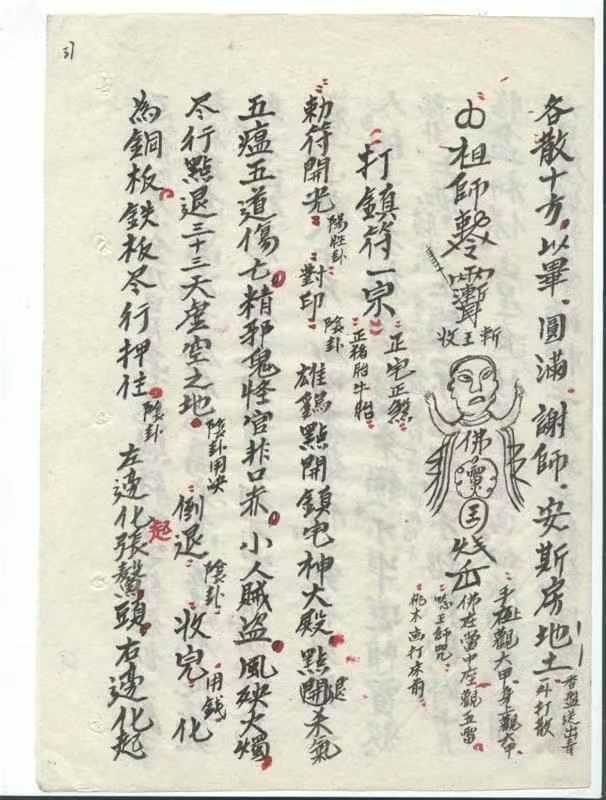 各散十方。以畢。圓滿。謝師。安斯房地土。
香盤送出音
外打散
祖師敕令
斬王收
佛
靈
王
手極觀大甲。身上觀大甲
佛在當中座觀五雷
念王師咒
桃木為打床前
打鎮符一宗
正屯正煞
正豬胎牛胎
勅符開光 陽勝卦 對印 陰卦 雄鷄點開鎮屯神大殿。點開退禾氣
五瘟五道傷亡。精邪鬼怪官非口赤。小人賊盜。風殃火燭
尽行點退三十三天虛空之地。陰卦用決 倒退 陰卦 收完 用錢 化
為銅板鉄板尽行押住。陰卦 左邊化起張鰲頭。右邊化起